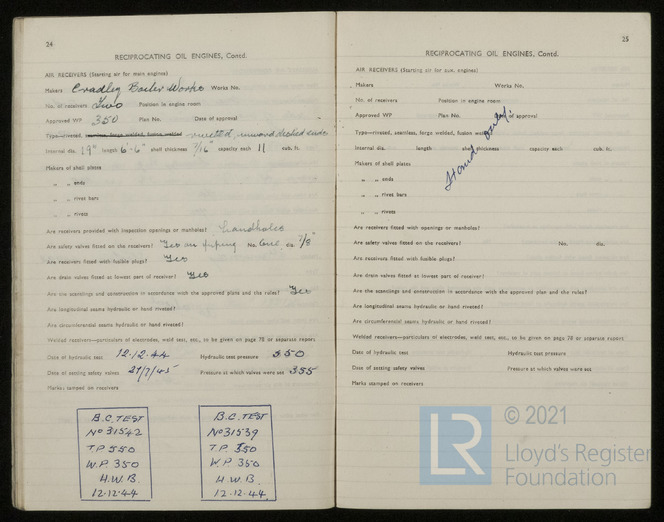 24
RECIPROCATING OIL ENGINES, Contd.
AIR RECEIVERS (Starting air for main engines)
Makers Cradley Boiler Works Works No.
No. of receivers Two Position in engine room
Approved WP 350 Plan No. Date of approval
Type—riveted, seamless, forge welded, fusion welded riveted, inward dished ends
Internal dia. 19" length 6'-6" shell thickness 7/16" capacity each 11 cub. ft.
Makers of shell plates
„ „ ends
„ „ rivet bars
„ „ rivets
Are receivers provided with inspection openings or manholes? handholes
Are safety valves fitted on the receivers? Yes on piping No. One dia. 7/8"
Are receivers fitted with fusible plugs? Yes
Are drain valves fitted at lowest part of receiver? Yes
Are the scantlings and construction in accordance with the approved plans and the rules? Yes
Are longitudinal seams hydraulic or hand riveted?
Are circumferential seams hydraulic or hand riveted?
Welded receivers—particulars of electrodes, weld test, etc., to be given on page 78 or separate report
Date of hydraulic test 12.12.44 Hydraulic test pressure 550
Date of setting safety valves 27/7/45 Pressure at which valves were set 355
Marks, stamped on receivers
B.C. TEST
No 31542
T.P. 550
W.P. 350
H.W.B.
12.12.44
B.C. TEST
No 31539
T.P. 550
W.P. 350
H.W.B.
12.12.44
25
RECIPROCATING OIL ENGINES, Contd.
AIR RECEIVERS (Starting air for aux. engines)
Makers Works No.
No. of receivers Position in engine room
Approved WP Plan No. Date of approval
Type—riveted, seamless, forge welded, fusion welded
Internal dia. length shell thickness capacity each cub. ft.
Makers of shell plates
„ „ ends
„ „ rivet bars
„ „ rivets
Are receivers fitted with openings or manholes?
Are safety valves fitted on the receivers? No. dia.
Are receivers fitted with fusible plugs?
Are drain valves fitted at lowest part of receiver?
Are the scantlings and construction in accordance with the approved plan and the rules?
Are longitudinal seams hydraulic or hand riveted?
Are circumferential seams hydraulic or hand riveted?
Welded receivers—particulars of electrodes, weld test, etc., to be given on page 78 or separate report
Date of hydraulic test Hydraulic test pressure
Date of setting safety valves Pressure at which valves were set
Marks stamped on receivers
LR
© 2021
Lloyd's Register
Foundation